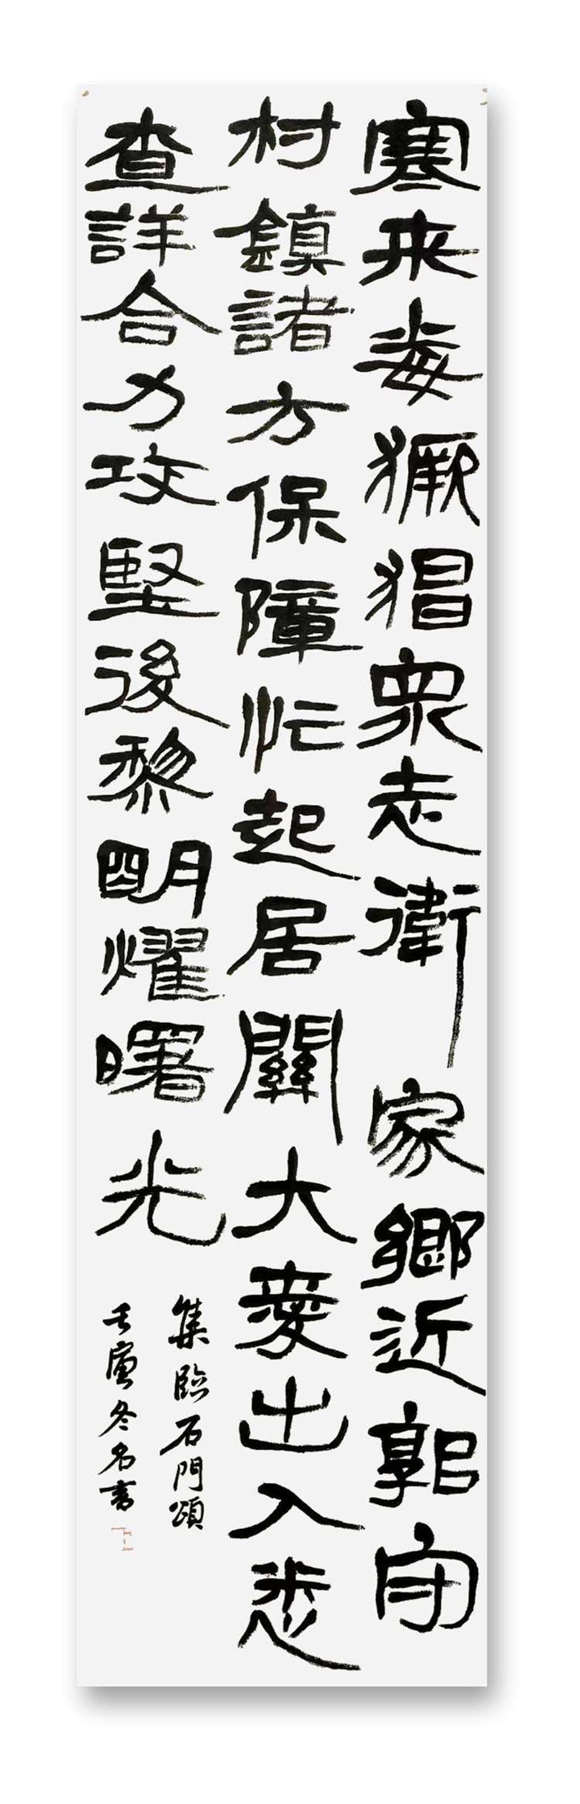 寒来毒獗猖眾走衛家鄉近郭守
村鎮諸方保障忙起居關大愛出入悉
查詳合力攻堅後黎明耀曙光
集臨石門頌
壬寅冬名書